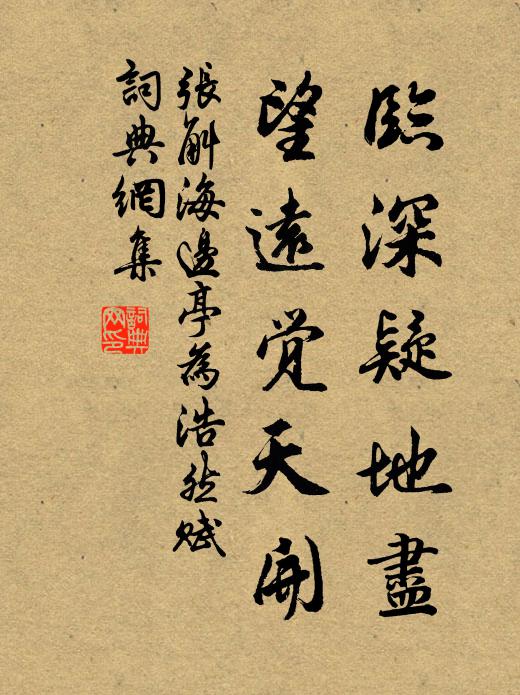 臨深疑地盡
望遠覺天開
張斛海邊亭為浩然賦
詞典網集
詞典
网印